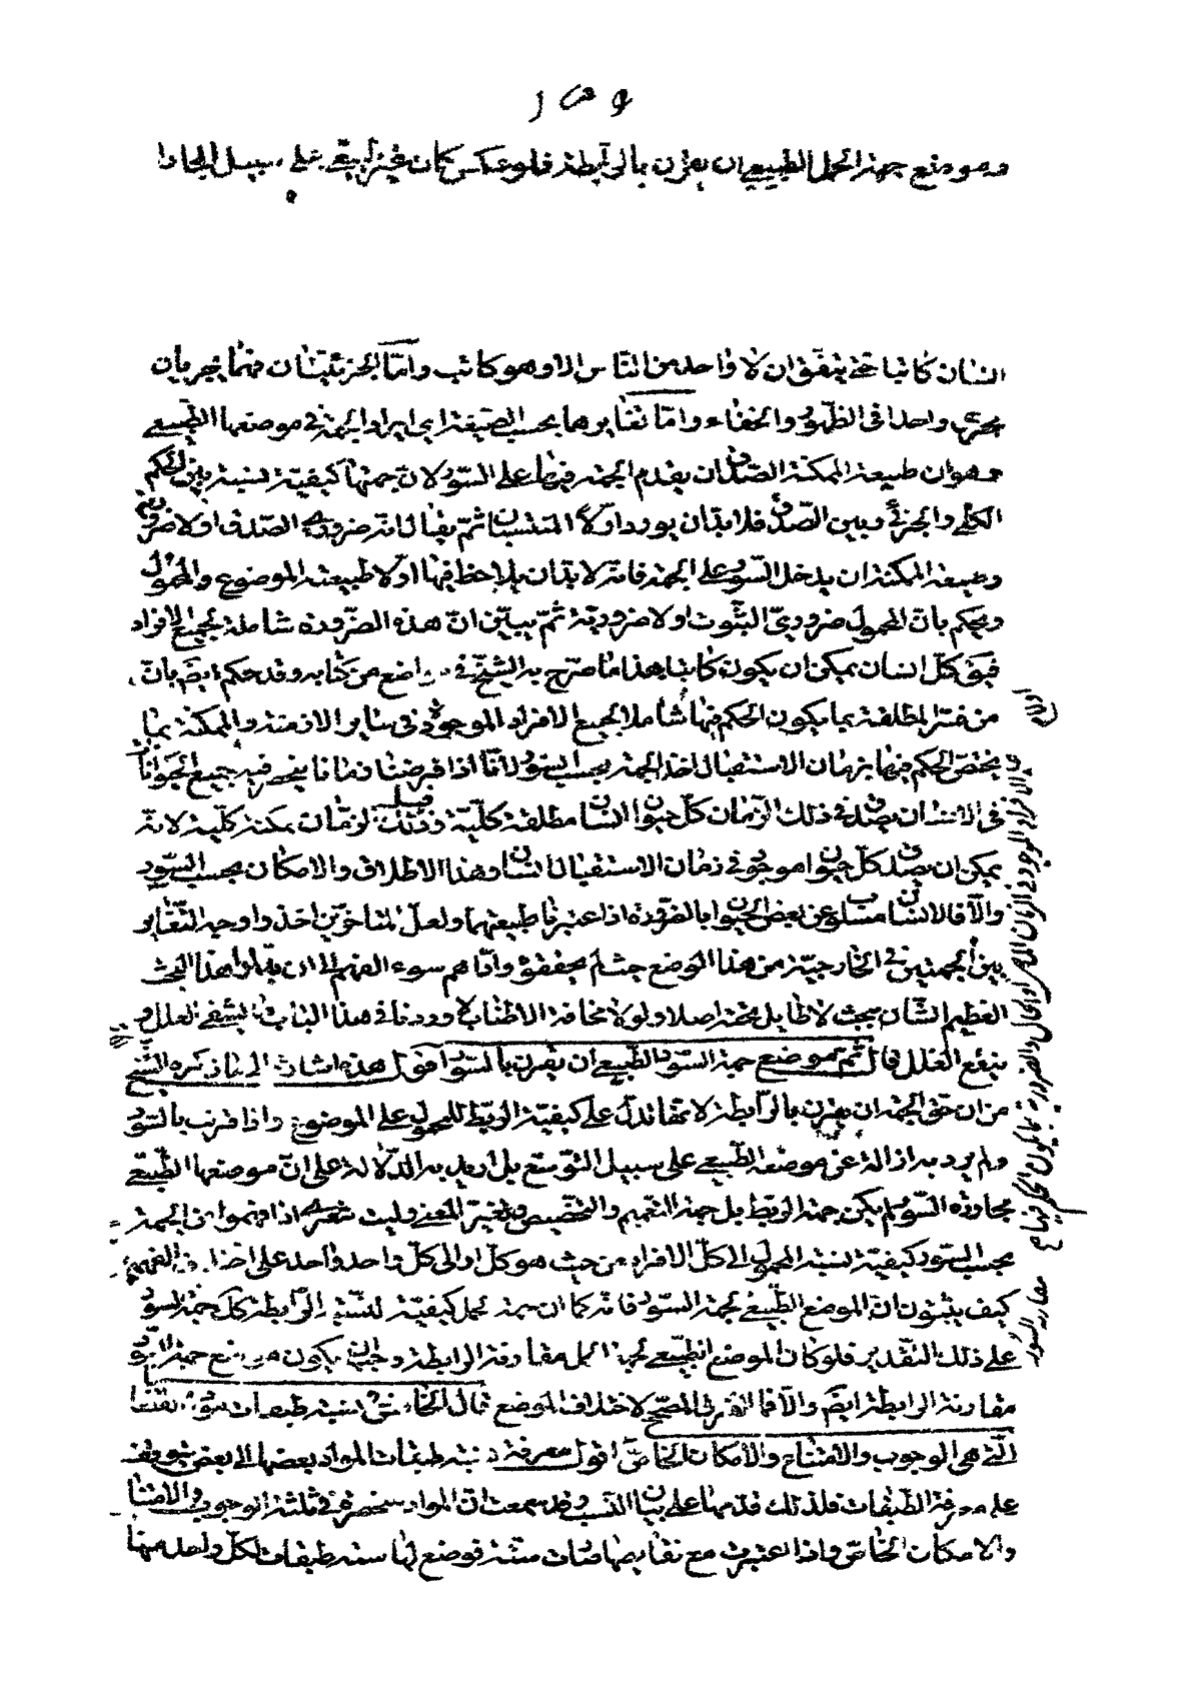 وموضع جهة الحمل الطبيعي ان يقرن بالرابطة فلو عكس كان تغيير على سبيل المجازا
انسان كاتبا حتى يتفق ان لا واحد من الناس الا وهو كاتب واما الجزئيتان فهما يجريان
مجرى واحدا فى الظهور والخفاء واما تغايرهما بحسب الصيغة اى ايراد الجهة فى موضعها الطبيعى
وهو ان طبيعة الممكنة ان يقدم الجهة فيها على السور لان جهتها كيفية نسبة بين الحكم
الكلى والجزئى وبين الصدق فلا بد ان يورد اولا المنتسبان ثم يقال انه ضرورى الصدق اولا ضرورى
وصيغة الممكنة ان يدخل السور على الجهة فانه لا بد ان يلاحظ فيها اولا طبيعة الموضوع والمحمول
ويحكم بان المحمول ضرورى الثبوت اولا ضرورية ثم يبين ان هذه الضرورة شاملة لجميع الافراد
فيق كل انسان يمكن ان يكون كاتبا هذا ما صرح به الشيخ فى مواضع من كتابه وقد حكم ايضا بان
من فسر المطلقة بما يكون الحكم فيها شاملا لجميع الافراد الموجودة فى ساير الازمنة والممكنة بما
يختص الحكم فيها بزمان الاستقبال اخذ الجهة بحسب السور لانا اذا فرضنا زمانا ينحصر فيه جميع الحيوانات
فى الانسان يصدق فى ذلك الزمان كل حيوان انسان مطلقة كلية وقبل ذلك الزمان ممكنة كلية لانه
يمكن ان يصدق كل حيوان موجود فى زمان الاستقبال انسان وهذا الاطلاق والامكان بحسب السور
والا فالانسان مسلوب عن بعض الحيوان بالضرورة اذا اعتبرنا طبيعتهما ولعل المتاخرين اخذوا وجه التغاير
بين الجهتين فى الخارجية من هذا الموضع حيث لم يحققوه واداهم سوء الفهم الى ان هذا البحث
العظيم الشان مبحث لا طايل تحته اصلا ولولا مخافة الاطناب لاوردنا فى هذا الباب ما يشفى العلل و
ينقع الغلل قال ثم موضع جهة السور الطبيعى ان يقرن بالسور اقول هذه اشارة الى ما ذكره الشيخ
من ان حق الجهة ان يقرن بالرابطة لانها تدل على كيفية الربط للمحمول على الموضوع واذا قرنت بالسور
ولم يرد به ازالة عن موضعه الطبيعى على سبيل التوسع بل اريد به الدلالة على ان موضعها الطبيعى
مجاورة السور لم يكن جهة الربط بل جهة التعميم والتخصيص وتغير المعنى وليت شعرى اذا فهموا من الجهة
بحسب السور كيفية نسبة المحمول الى كل الافراد من حيث هو كل او الى كل واحد واحد على
كيف يثبتون ان الموضع الطبيعى لجهة السور فانه كما ان جهة الحمل كيفية لنسبة الرابطة كك جهة السور
على ذلك التقدير فلو كان الموضع الطبيعى لجهة الحمل مقارنة الرابطة وجب ان يكون موضع جهة السور
مقارنة الرابطة ايضا والا فما الفرق المصحح لاختلاف الموضع قال الخامس فى نسبة طبقات
التى هى الوجوب والامتناع والامكان الخاص اقول معرفة نسبة طبقات المواد بعضها الى بعض يتوقف
على معرفة الطبقات فلذلك قدمها على بيان النسب وقد سمعت ان المواد منحصرة فى ثلثة الوجوب والامتناع
والامكان الخاص واذا اعتبرت مع نقايضها صارت ستة فوضع لها ستة طبقات لكل واحد منها